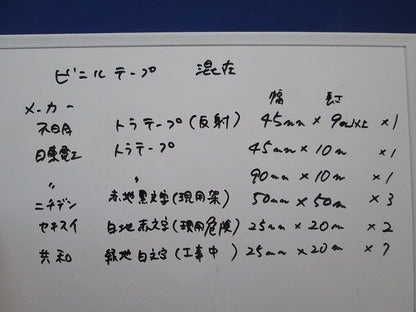 ビニルテープ 混在
メーカー 幅 長
不明 トラテープ(反射) 45mm × 9m以上 ×1
日東電工 トラテープ 45mm × 10m ×1
〃 〃 90mm × 10m ×1
ニチデン 赤地黒文字(現用架) 50mm × 50m × 3
セキスイ 白地赤文字(現用危険) 25mm × 20m × 2
共和 緑地白文字(工事中) 25mm × 20m × 7